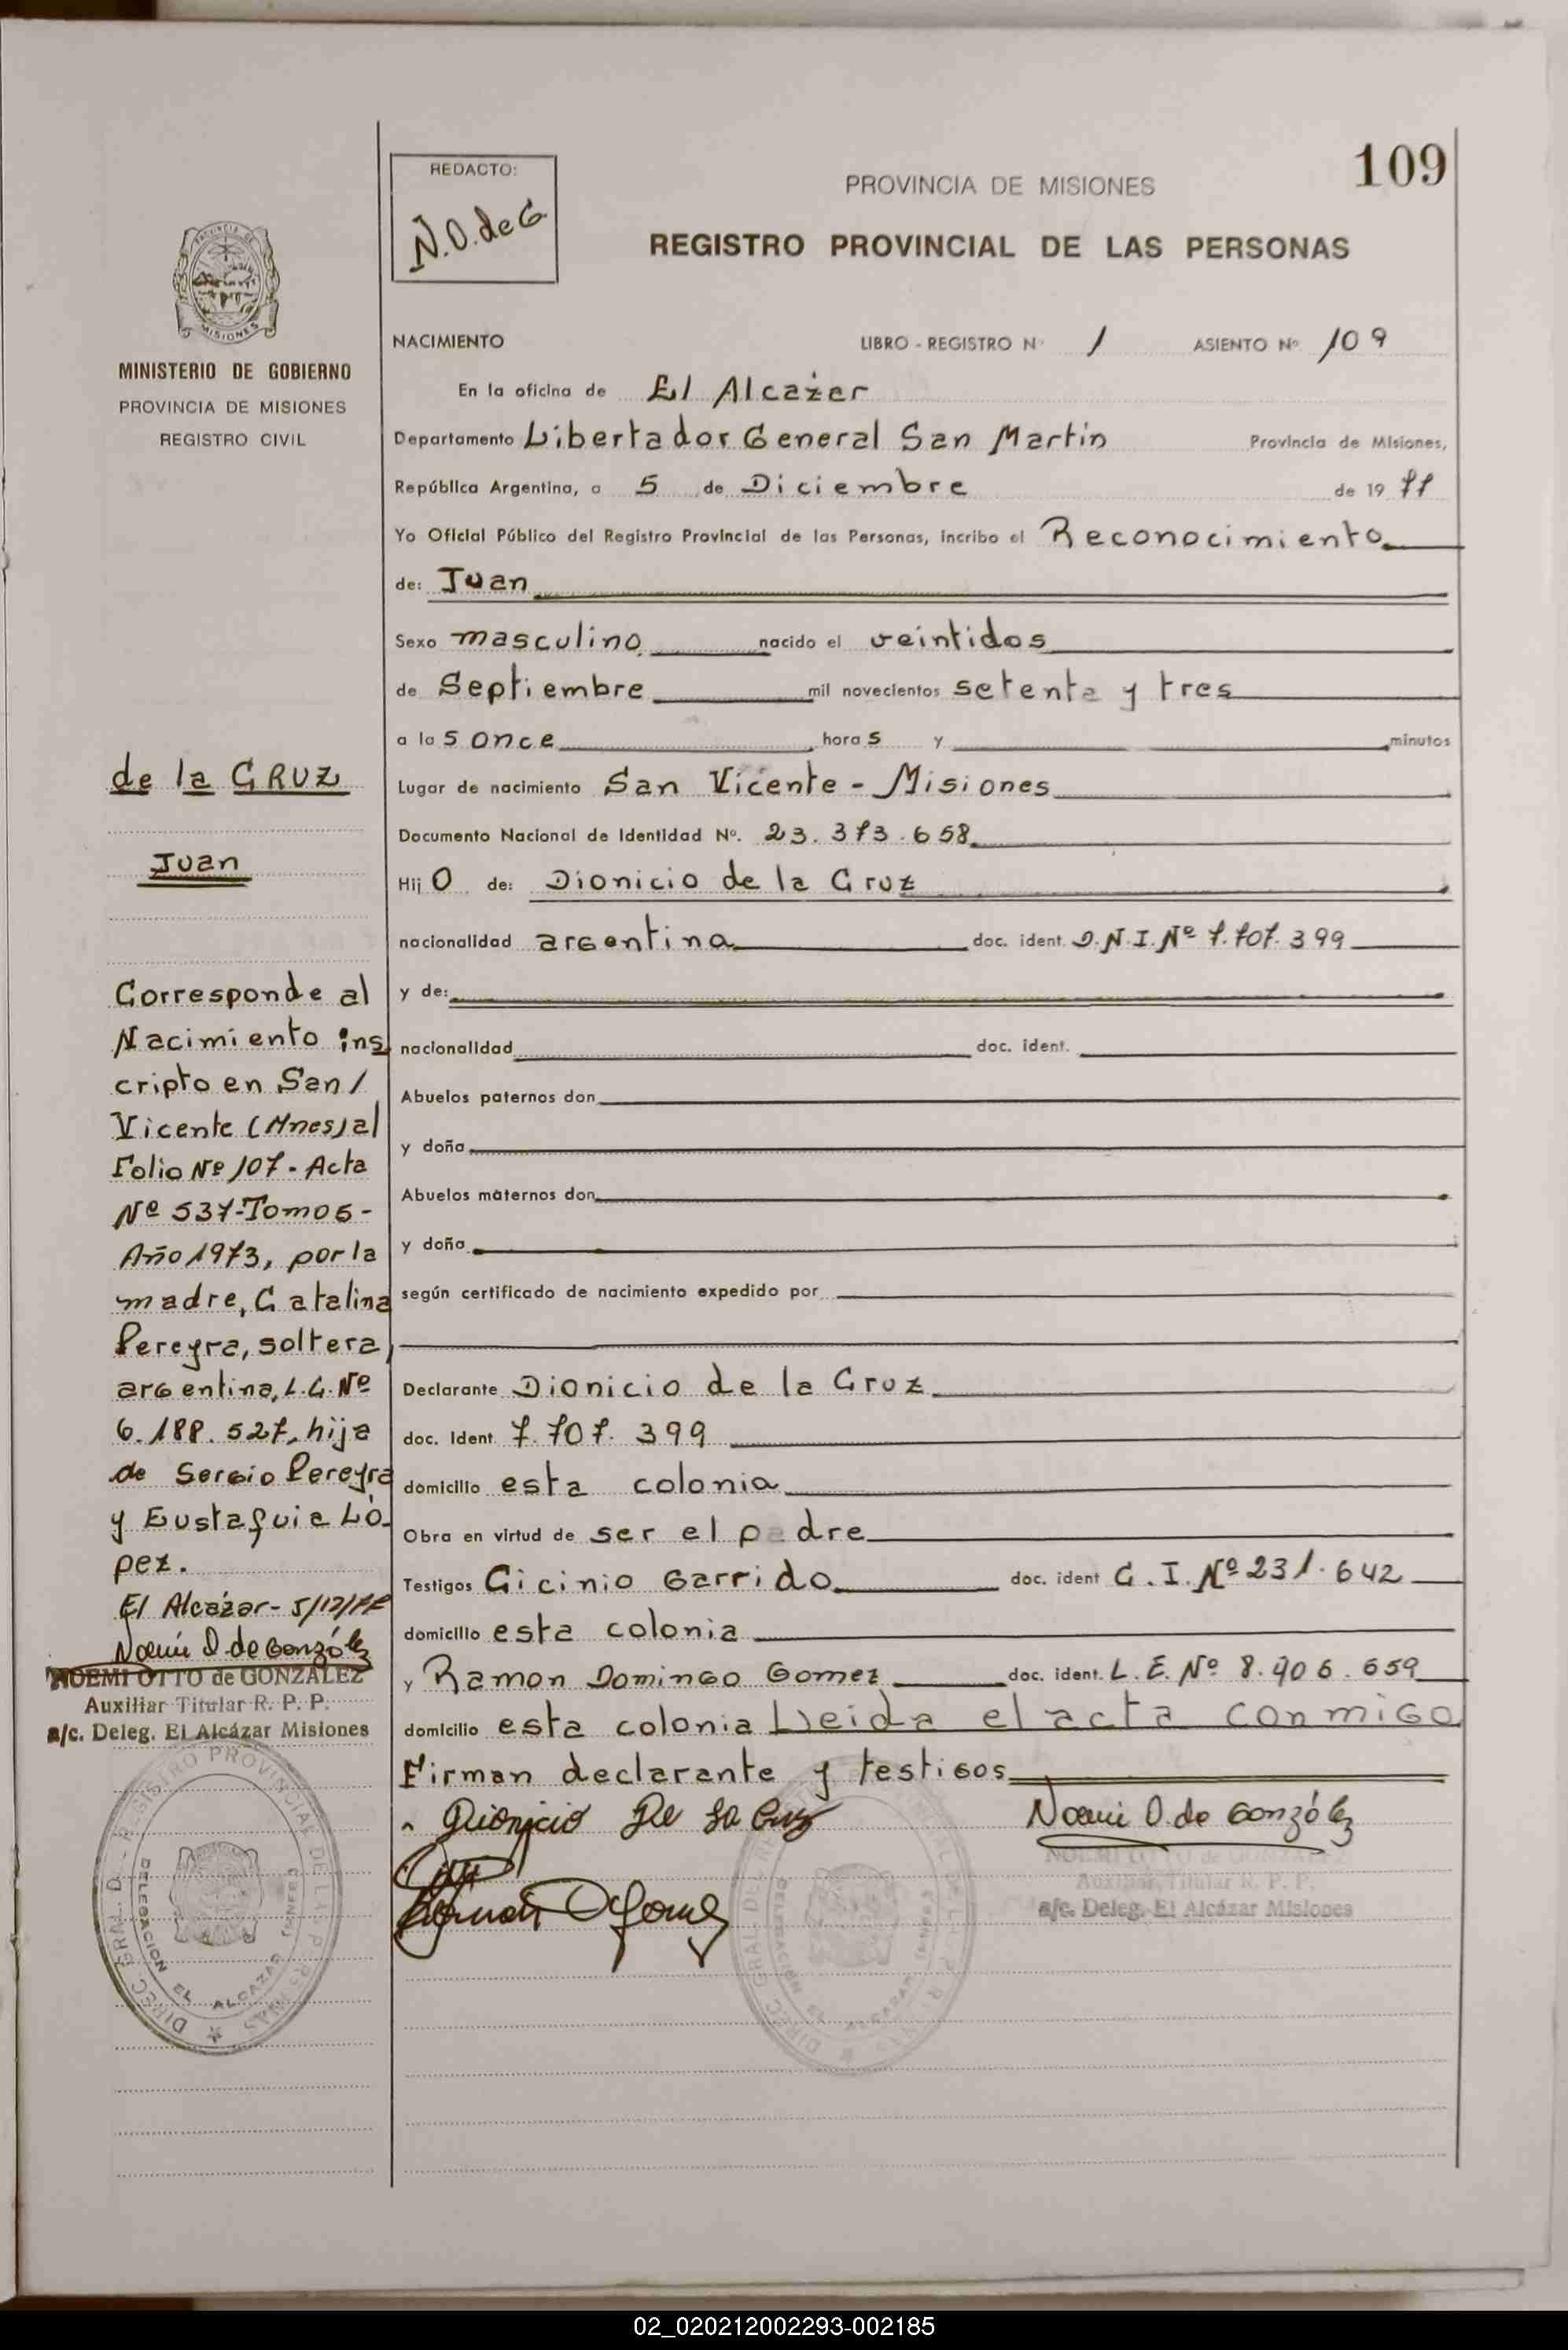 109
REDACTO:
N.O. de G
PROVINCIA DE MISIONES
REGISTRO PROVINCIAL DE LAS PERSONAS
PROVINCIA DE
MISIONES
MINISTERIO DE GOBIERNO
PROVINCIA DE MISIONES
REGISTRO CIVIL
NACIMIENTO LIBRO - REGISTRO N° 1 ASIENTO Nº 109
En la oficina de El Alcázar
Departamento Libertador General San Martín Provincia de Misiones,
República Argentina, a 5 de Diciembre de 19 77
Yo Oficial Público del Registro Provincial de las Personas, incribo el Reconocimiento
de: Juan
Sexo masculino nacido el veintidos
de Septiembre mil novecientos setenta y tres
a las once horas y minutos
Lugar de nacimiento San Vicente - Misiones
Documento Nacional de Identidad Nº. 23.373.658
Hijo de: Dionicio de la Cruz
nacionalidad argentina doc. ident. D.N.I. Nº 7.707.399
y de:
nacionalidad doc. ident.
Abuelos paternos don
y doña
Abuelos maternos don
y doña
según certificado de nacimiento expedido por
Declarante Dionicio de la Cruz
doc. Ident 7.707.399
domicilio esta colonia
Obra en virtud de ser el padre
Testigos Cicinio Garrido doc. ident C.I. Nº 231.642
domicilio esta colonia
y Ramon Domingo Gomez doc. ident. L.E. Nº 8.406.659
domicilio esta colonia Lleida el acta conmigo
Firman declarante y testigos
Dionicio De La Cruz
Noemi O. de González
NOEMI OTTO de GONZALEZ
Auxiliar Titular R. P. P.
a/c. Deleg. El Alcázar Misiones
de la CRUZ
Juan
Corresponde al
Nacimiento ins
cripto en San/
Vicente (Mnes) al
Folio Nº 107 - Acta
Nº 537-Tomo 5-
Año 1973, por la
madre, Catalina
Pereyra, soltera,
argentina, L.C. Nº
6.188.527, hija
de Sergio Pereyra
y Eustaquia Ló-
pez.
El Alcázar - 5/12/77
Noemi O. de González
NOEMI OTTO de GONZALEZ
Auxiliar Titular R. P. P.
a/c. Deleg. El Alcázar Misiones
DIREC. GRAL. D. REGISTRO PROVINCIAL DE LAS PERSONAS
DELEGACION EL ALCAZAR
02_020212002293-002185